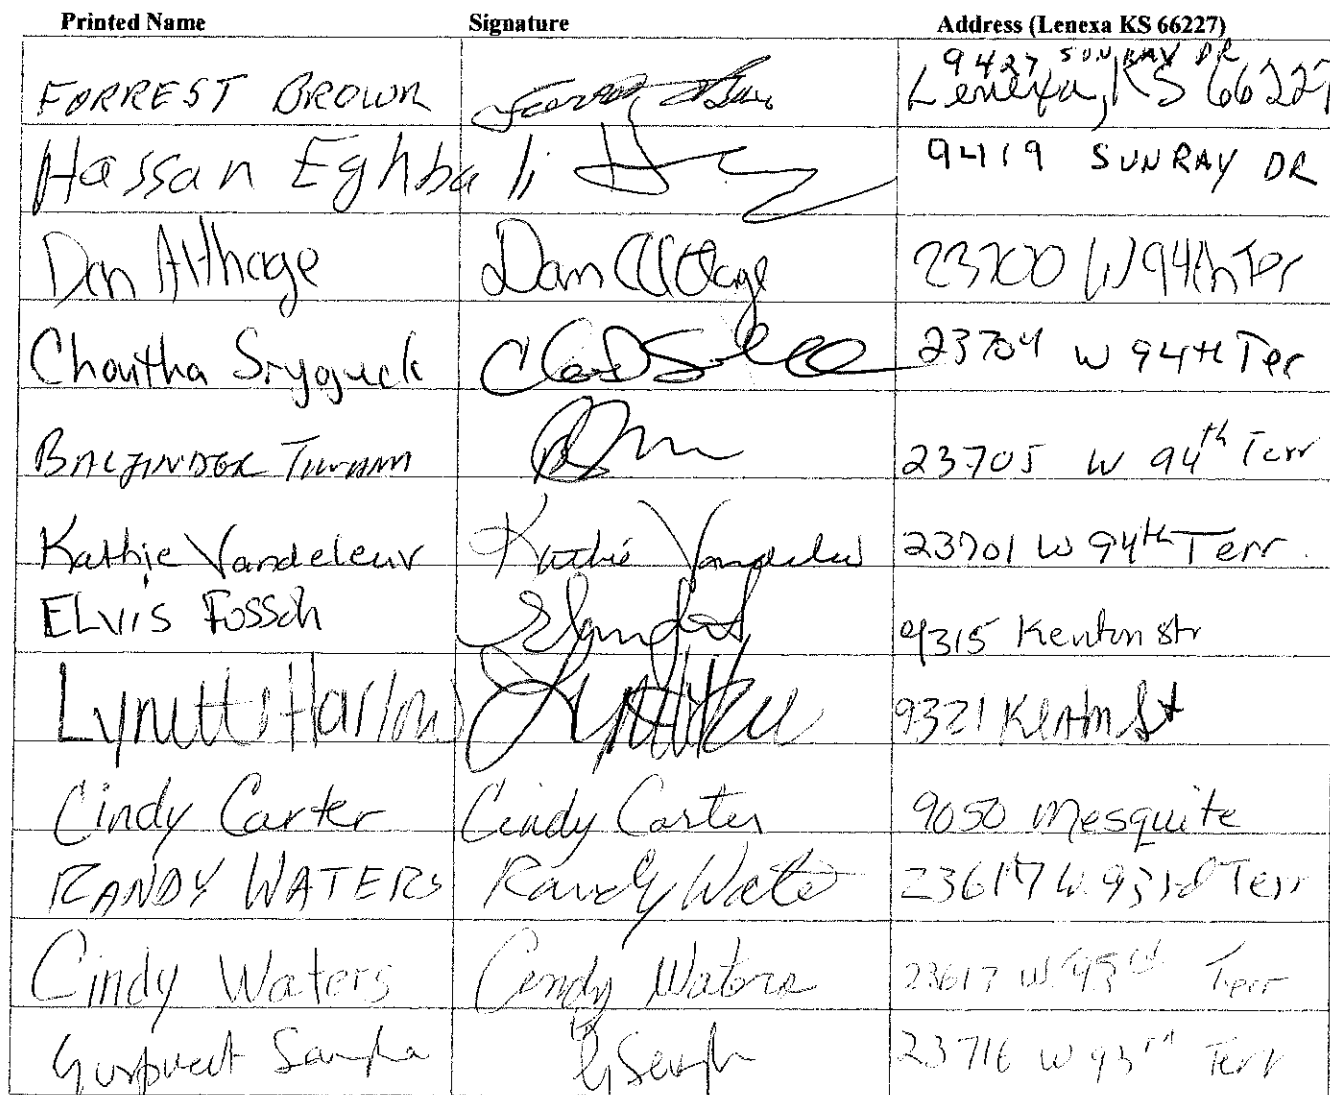 Printed Name Signature Address (Lenexa KS 66227)
FORREST BROWN 9427 SUNRAY DR
Lenexa, KS 66227
Hassan Eghbali 9419 SUNRAY DR
Dan Althage Dan Althage 23700 W 94th Ter
Chantha 23704 W 94th Ter
23705 W 94th Terr
Kathie Vandeleur Kathie Vandeleur 23701 W 94th Terr.
ELVIS FOSSOH 9315 Kenton str
Lynette Harlow 9321 Kenton St
Cindy Carter Cindy Carter 9050 Mesquite
RANDY WATERS Randy Waters 23617 W. 93rd Terr
Cindy Waters Cindy Waters 23617 W 93rd Terr
Gurpreet Sangha 23716 W 93rd Terr